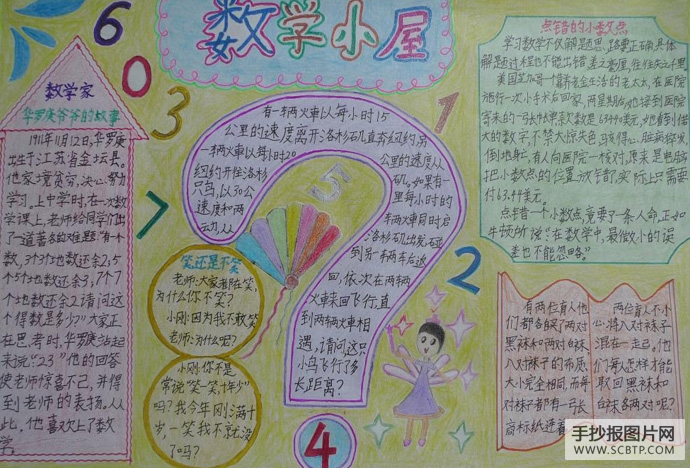 数学小屋
数学家
华罗庚爷爷的故事
1911年11月12日,华罗庚
出生于江苏省金坛县。
他家境贫穷,决心努力
学习。上中学时,在一次数
学课上,老师给同学们出
了一道著名的难题“有一个
数,3个3个地数还余2,5
个5个地数还余3,7个7
个地数还余2,请问这
个得数是多少?”大家正
在思考时,华罗庚站起
来说“23”他的回答
使老师惊喜不已,并得
到老师的表扬。从
此,他喜欢上了数
学
6
0
3
7
1
5
2
4
有一辆火車以每小时15
公里的速度离开洛杉矶直奔纽约,另
一辆火車以每小时20
公里的速度从
纽约开往洛杉
矶。如果有一
只鸟,以30公
里每小时的
速度和两
辆火車同时启
动,从
洛杉矶出发,碰
到另一辆车后返
回,依次在两辆
火車来回飞行,直
到两辆火車相
遇,请问这只
小鸟飞行了多
长距离?
笑还是不笑
老师:大家都在笑,
为什么你不笑?
小刚:因为我不敢笑
老师:为什么呢?
小刚:你不是
常说“笑一笑,十年少”
吗?我今年刚满十
岁,一笑我不就没
了吗?
点错的小数点
学习数学不仅解题思路要正确,具体
解题过程也不能出错,差之毫厘,往往失之千里。
美国芝加哥一个靠养老金生活的老太太,在医院
施行一次小手术后回家,两星期后,她接到医院
寄来的一张帐单,款数是63440美元,她看到偌
大的数字,不禁大惊失色,骇得心脏病猝发,
倒地身亡,后来,有人向医院一核对,原来是电脑
把小数点的位置放错了,实际上只需要
付63.44美元。
点错一个小数点,竟要了一条人命。正如
牛顿所说:“在数学中,最微小的误
差也不能忽略。”
有两位盲人,他
们都各自买了两对
黑袜和两对白袜,
八对袜子的布质、
大小完全相同,而每
对袜子都有一张
商标纸连着
两位盲人不小
心将八对袜子
混在一起,他
们每人怎样才能
取回黑袜和
白袜各两对呢?
手抄报图片网
WWW.SCBTP.COM